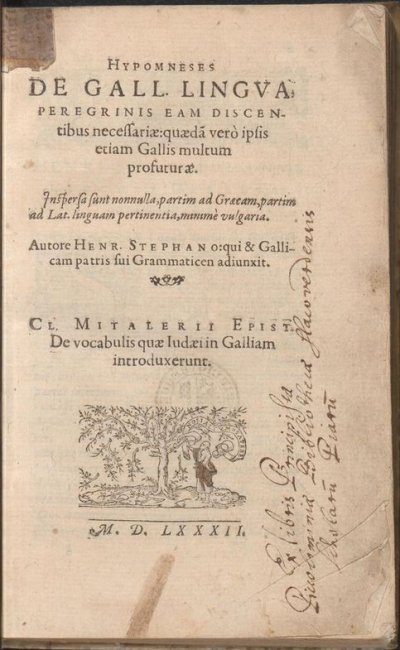 HYPOMNESES
DE GALL. LINGVA,
PEREGRINIS EAM DISCEN-
tibus neceſſariæ: quædã verò ipſis
etiam Gallis multum
profuturæ.
Inſperſa ſunt nonnulla, partim ad Græcam, partim
ad Lat. linguam pertinentia, minimè vulgaria.
Autore HENR. STEPHANO: qui & Galli-
cam patris ſui Grammaticen adiunxit.
CL. MITALERII EPIST.
De vocabulis quæ Iudæi in Galliam
introduxerunt.
M. D. LXXXII.
Ex libris Principista
Picolominea Bibliotheca
Scholarũ Piarũ